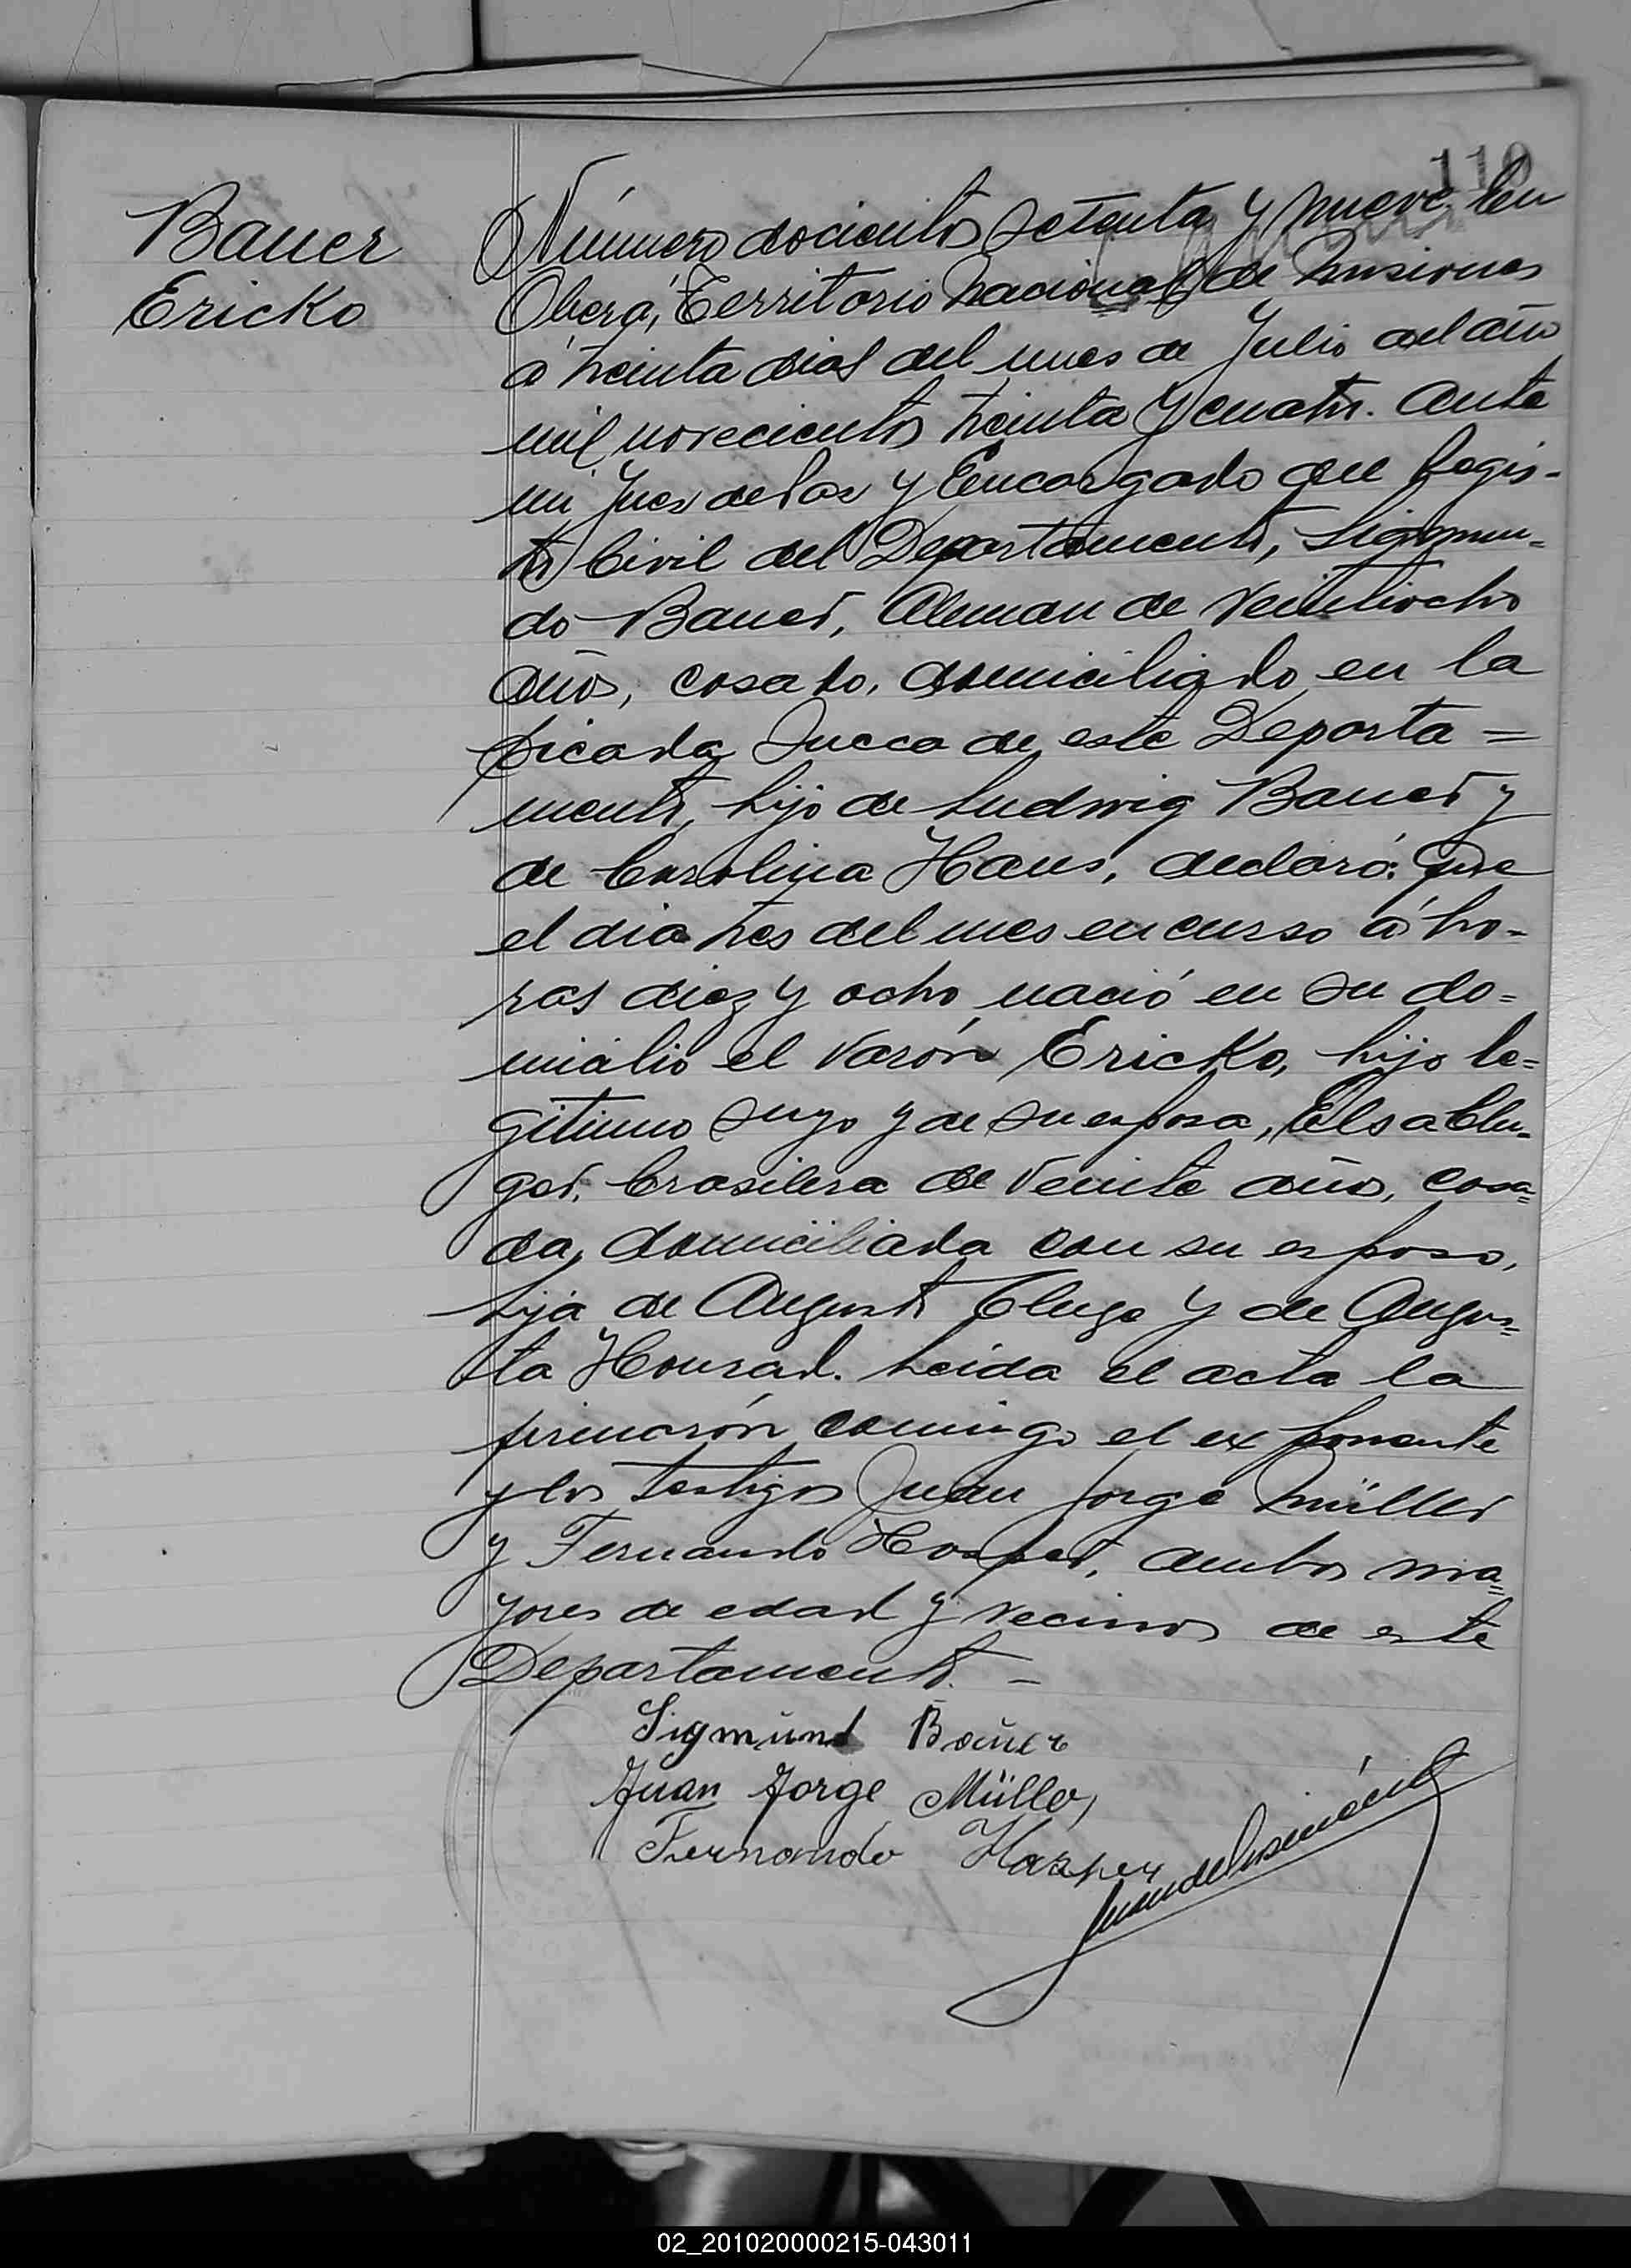 110
Bauer
Ericko
Número docientos setenta y nueve. En
Oberá, Territorio Nacional de Misiones
á treinta dias del mes de Julio del año
mil novecientos treinta y cuatro. Ante
mi Juez de Paz y Encargado del Regis-
tro Civil del Departamento, Sigmun-
do Bauer, Aleman de veintiocho
años, casado, domiciliado en la
picada Sueca de este Departa=
mento, hijo de Ludwig Bauer y
de Carolina Haus, declaró: Que
el dia tres del mes en curso á ho-
ras diez y ocho nació en su do=
micilio el varón Ericko, hijo le=
gitimo suyo y de su esposa, Elsa Clu-
ger, brasilera de veinte años, casa=
da, domiciliada con su esposo,
hija de Augusto Cluge y de Augus=
ta Honrad. Leida el acta la
firmarón comingo el exponente
y los testigos Juan Jorge Müller
y Fernando Hosper, ambos ma=
yores de edad y vecinos de este
Departamento. -
Sigmund Bauer
Juan Jorge Müller
Fernando
02_201020000215-043011